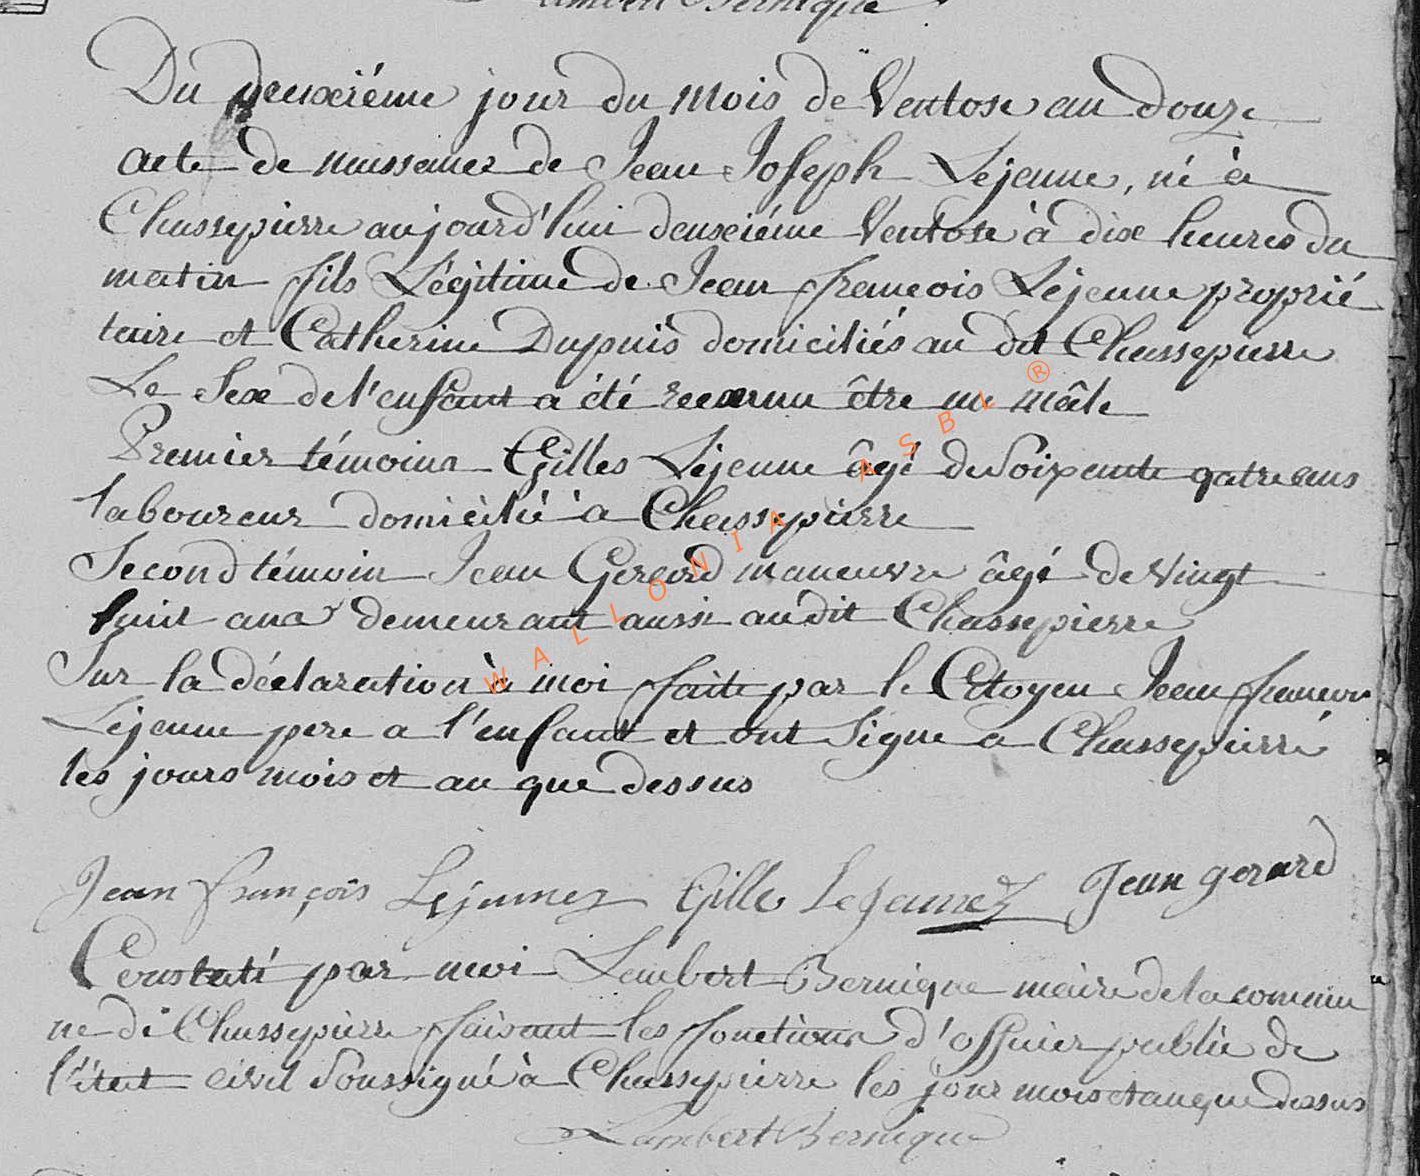 Lambert Bernique
Du deuxiéme jour du mois de Ventose an douze
acte de naissance de Jean Joseph Lejeune, né à
Chassepierre aujourd'hui deuxiéme Ventose à dix heures du
matin fils Légitime de Jean françois Lejeune proprié
taire et Catherine Dupuis domiciliés au dit Chassepierre
Le Sexe de l'enfant a été reconnu être un mâle
Premier témoins Gilles Lejeune âgé de Soixante qatre ans
laboureur domicilié à Chassepierre
Second témoin Jean Gerard maneuvre âgé de vingt
huit ans demeurant aussi au dit Chassepierre
Sur la déclaration à moi faite par le Citoyen Jean francois
Lejeune pere a l'enfant et ont Signe a Chassepierre
les jours mois et an que dessus
Jean françois Lejeune Gille Lejeune Jean gerard
Constaté par moi Lambert Bernique maire de la commu
ne de Chassepierre faisant les fonctions d'officier public de
l'état civil Soussigné à Chassepierre les jour mois et an que dessus
Lambert Bernique
WALLONIA ASBL ®